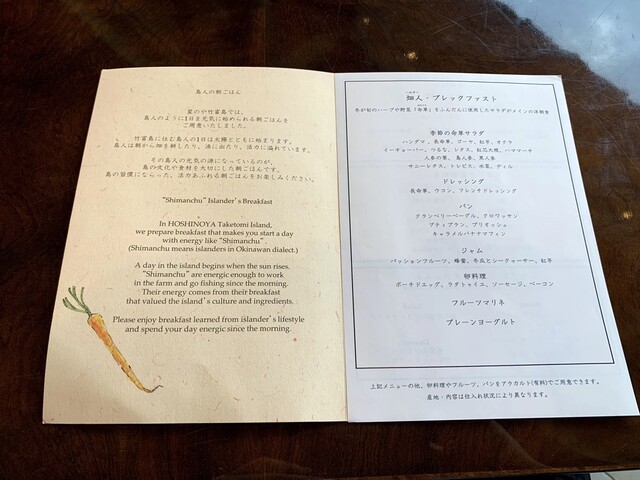 島人の朝ごはん
星のや竹富島では、
島人のように1日を元気に始められる朝ごはんを
ご用意いたしました。
竹富島に住む島人の1日は太陽とともに始まります。
島人は朝から畑を耕したり、漁に出たり、活力に溢れています。
その島人の元気の源になっているのが、
島の文化や食材を大切にした朝ごはんです。
島の習慣にならった、活力あふれる朝ごはんをお楽しみください。
"Shimanchu" Islander's Breakfast
In HOSHINOYA Taketomi Island,
we prepare breakfast that makes you start a day
with energy like "Shimanchu".
(Shimanchu means islanders in Okinawan dialect.)
A day in the island begins when the sun rises.
"Shimanchu" are energic enough to work
in the farm and go fishing since the morning.
Their energy comes from their breakfast
that valued the island's culture and ingredients.
Please enjoy breakfast learned from islander's lifestyle
and spend your day energic since the morning.
畑人・ブレックファスト
冬が旬のハーブや野菜「命草」をふんだんに使用したサラダがメインの洋朝食
季節の命草サラダ
ハンダマ、長命草、ゴーヤ、紅芋、オクラ
イーチョーバー、つるな、レタス、紅芯大根、ハママーサ
人参の葉、島人参、黒人参
サニーレタス、トレビス、水菜、ディル
ドレッシング
長命草、ウコン、フレンチドレッシング
パン
クランベリーベーグル、クロワッサン
プティパン、ブリオッシュ
キャラメルバナナマフィン
ジャム
パッションフルーツ、蜂蜜、冬瓜とシークヮーサー、紅芋
卵料理
ポーチドエッグ、ラタトゥイユ、ソーセージ、ベーコン
フルーツマリネ
プレーンヨーグルト
上記メニューの他、卵料理やフルーツ、パンをアラカルト(有料)でご用意できます。
産地・内容は仕入れ状況により異なります。